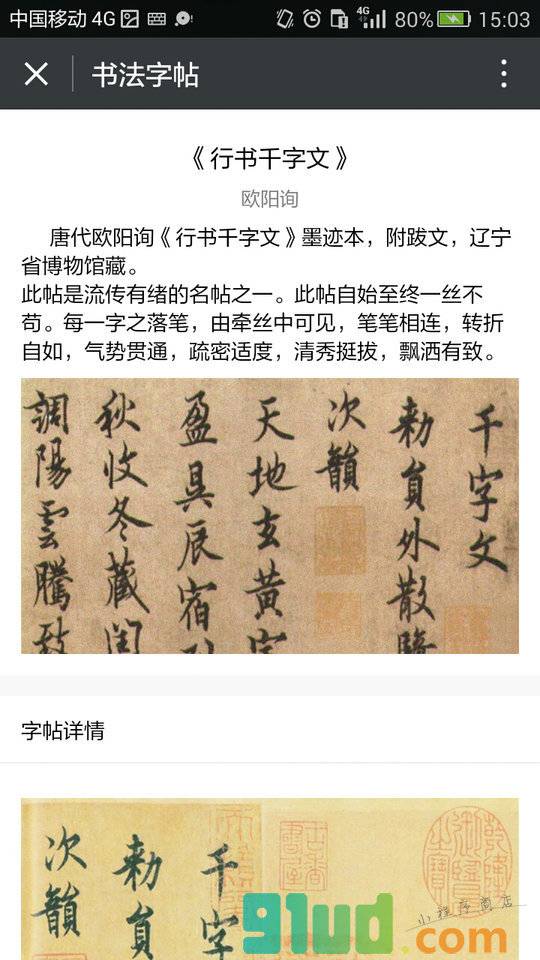 中国移动 4G 80% 15:03
书法字帖
《行书千字文》
欧阳询
唐代欧阳询《行书千字文》墨迹本，附跋文，辽宁
省博物馆藏。
此帖是流传有绪的名帖之一。此帖自始至终一丝不
苟。每一字之落笔，由牵丝中可见，笔笔相连，转折
自如，气势贯通，疏密适度，清秀挺拔，飘洒有致。
千字文
勑員外散騎
次韻
天地玄黄宇
盈昃辰宿列
秋收冬藏閏
調陽雲騰致
字帖详情
千字
勑員
次韻
乾隆御覽之寶
小程序商店
91ud.com